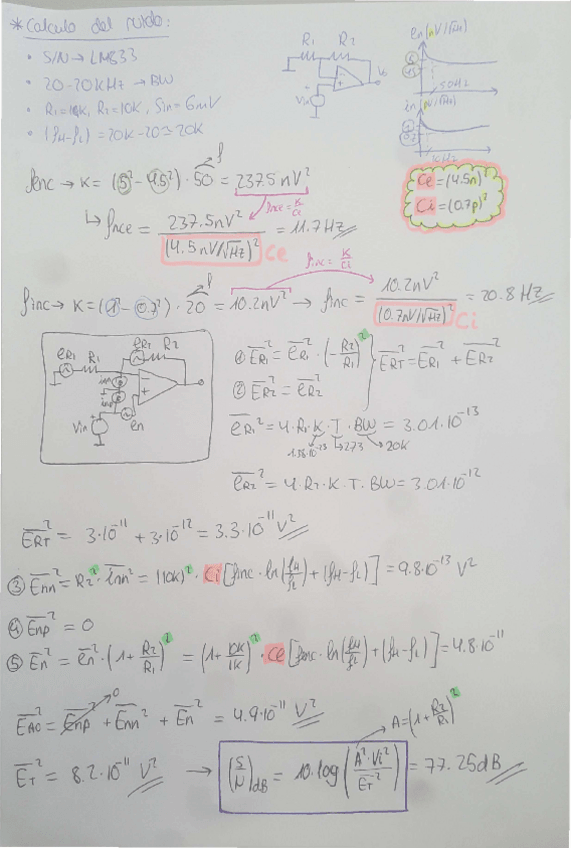 * Calculo del ruido:
• S/N → LM833
• 20-20KHz → BW
• R1=1K, R2=10K, Sin=6mV
• (fH-fL) = 20K-20 ≃ 20K
R1 R2
Vin
Vo
en (nV/√Hz)
5
4.5
50Hz
in (pV/√Hz)
1
0.7
KHz
Ce = (4.5n)²
Ci = (0.7p)²
fenc → K = (5² - 4.5²) · 50 = 237.5 nV²
f
fnce = K/Ce
↳ fnce = 237.5nV² / (4.5 nV/√Hz)² = 11.7Hz
Ce
finc → K = (1² - 0.7²) · 20 = 10.2nV² → finc = 10.2nV² / (0.7nV/√Hz)² = 20.8 Hz
f
finc = K/Ci
Ci
eR1 R1 eR2 R2
inn
inp
en
Vin
① ER1² = eR1² · (-R2/R1)²
② ER2² = eR2²
ERT² = ER1² + ER2²
eR1² = 4·R1·K·T·BW = 3.01·10⁻¹³
273 20K
eR2² = 4·R2·K·T·BW = 3.01·10⁻¹²
ERT² = 3·10⁻¹¹ + 3·10⁻¹² = 3.3·10⁻¹¹ V²
③ Enn² = R2² · inn² = (10K)² · Ci [finc · ln(fH/fL) + (fH-fL)] = 9.8·10⁻¹³ V²
④ Enp² = 0
⑤ En² = en² · (1 + R2/R1)² = (1 + 10K/1K)² · Ce [fenc · ln(fH/fL) + (fH-fL)] = 4.8·10⁻¹¹
EAO² = Enp² + Enn² + En² = 4.9·10⁻¹¹ V²
0
A = (1 + R2/R1)²
ET² = 8.2·10⁻¹¹ V² → (S/N)dB = 10·log(A²·Vi²/ET²) = 77.25dB